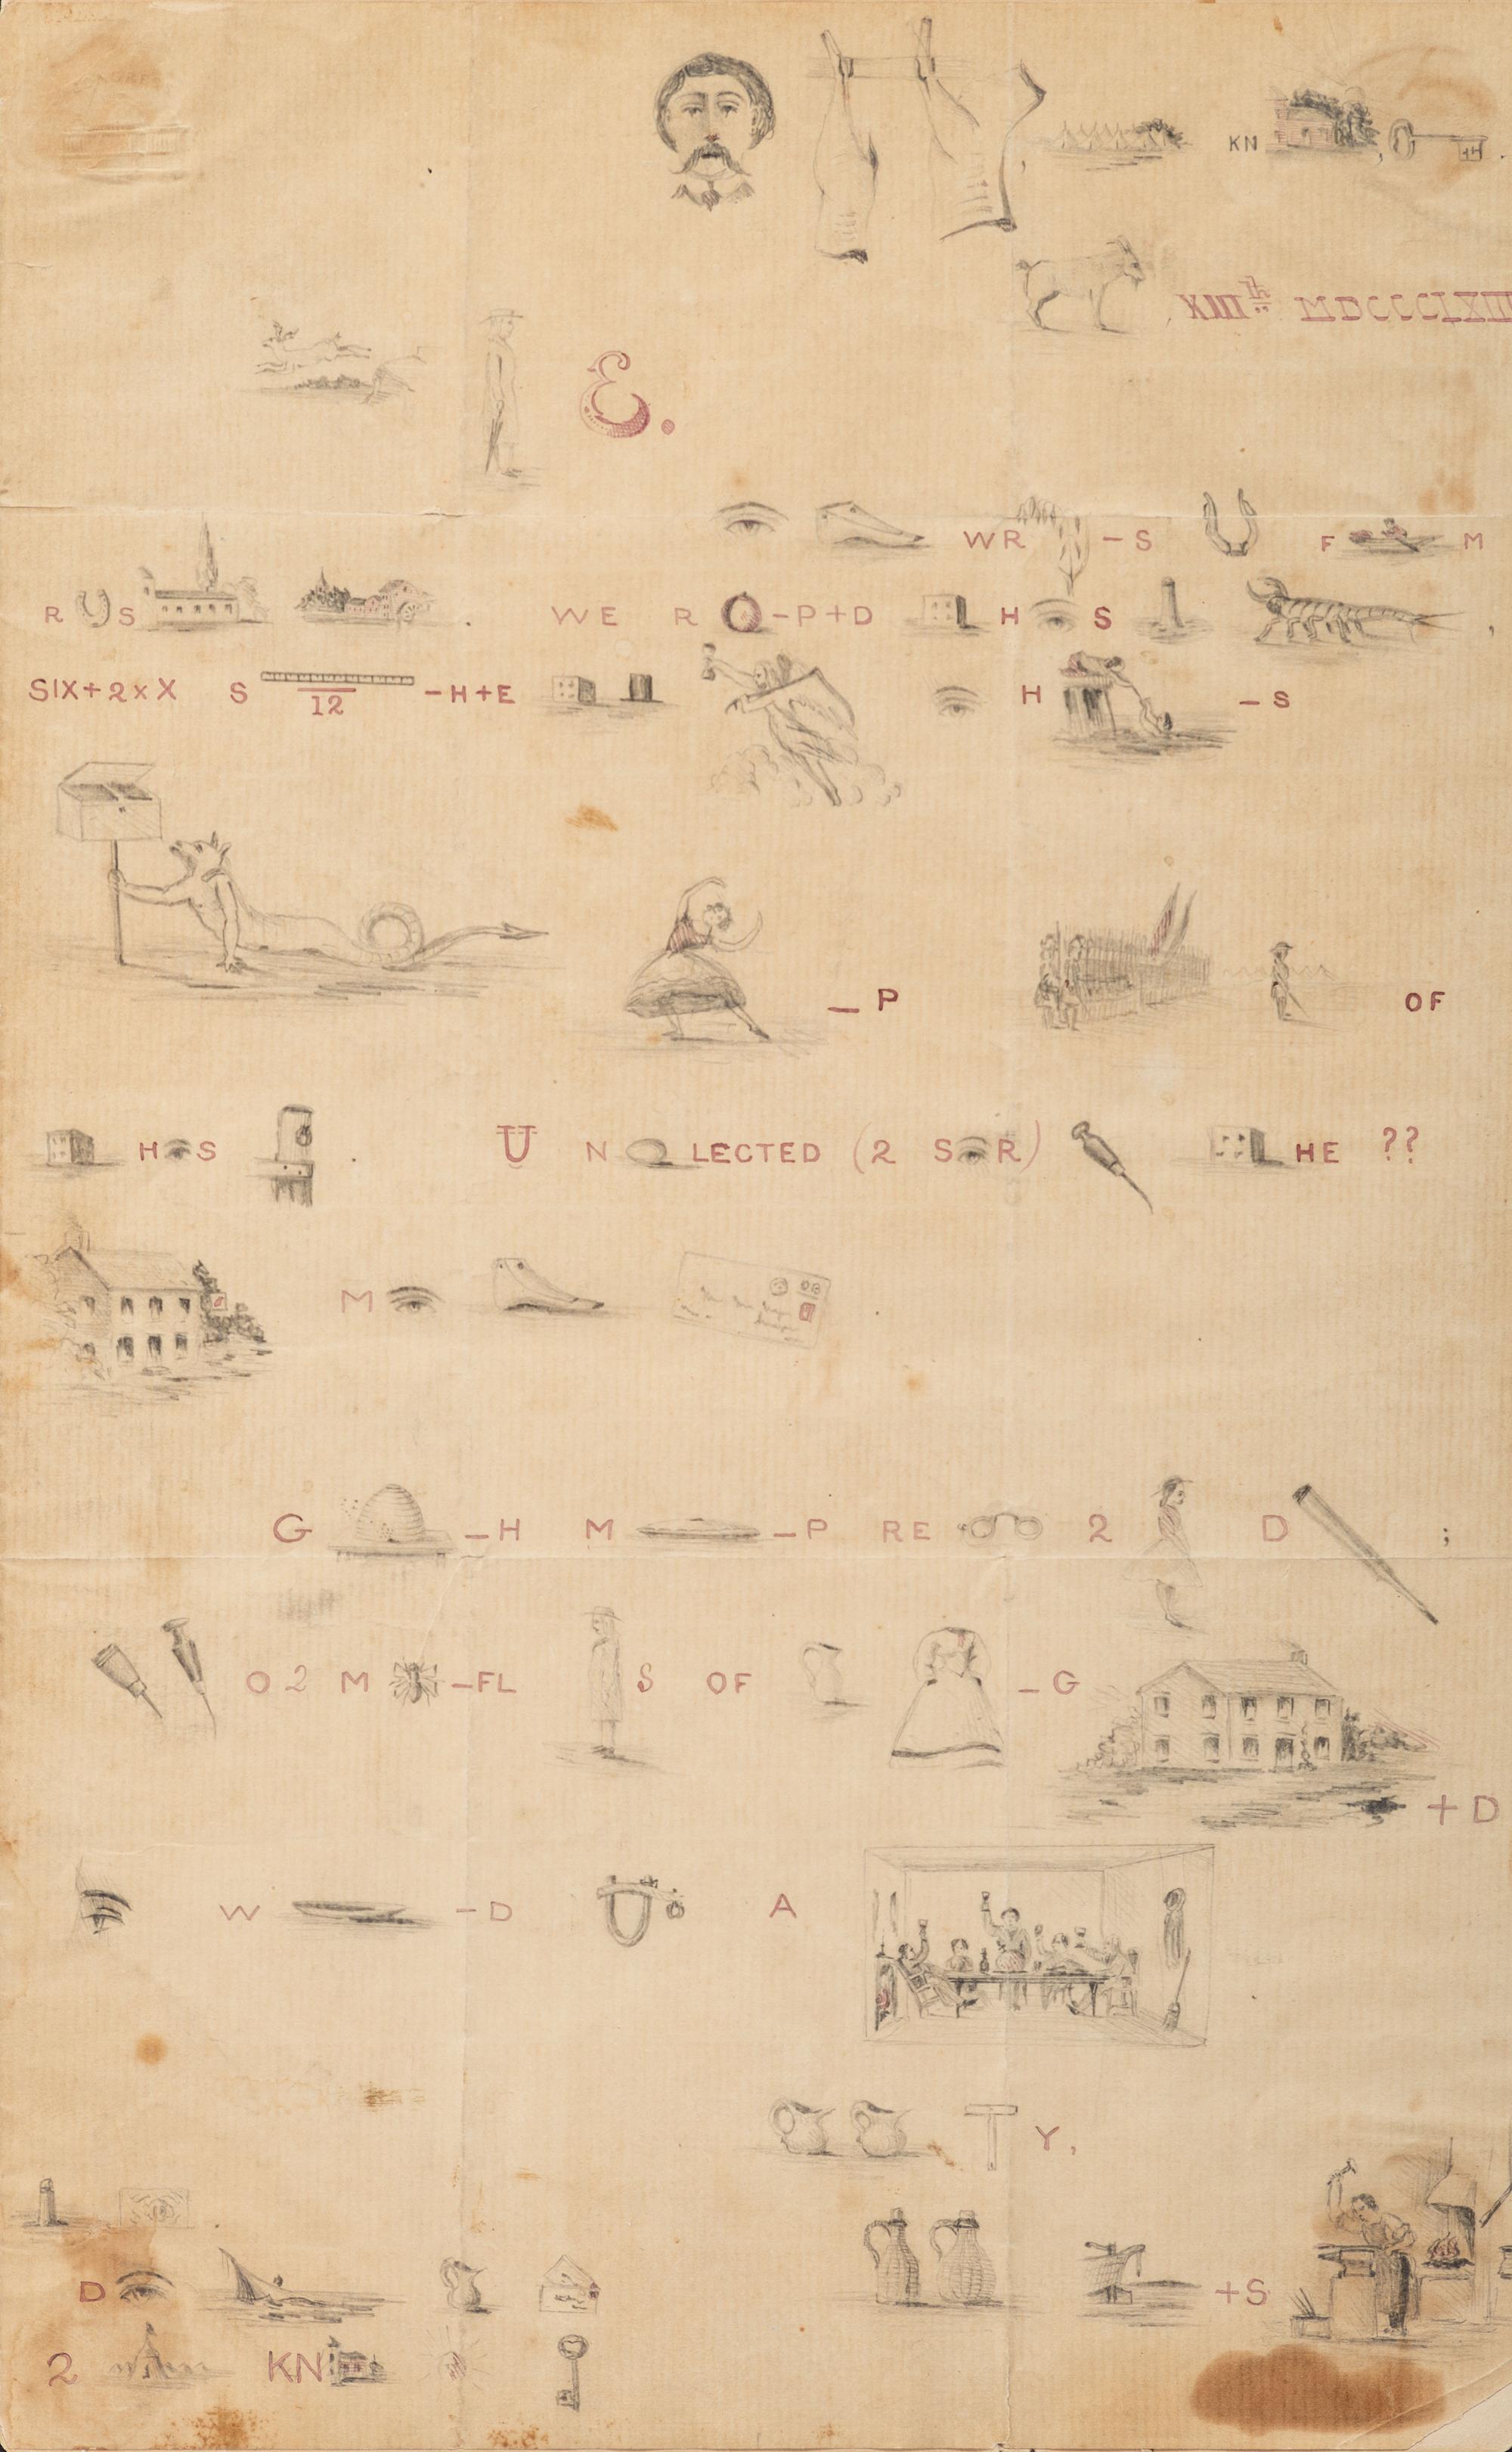 KN
XIIIth MDCCCLXIII
E.
WR - S F M
R S . WE R - P + D H S ,
SIX + 2 x X S 12 - H + E H - S
- P OF
H S . U N LECTED (2 S R) HE ??
M
G - H M - P RE 2 D ;
O 2 M - FL S OF - G
+ D
W - D A
T Y,
D + S
2 KN